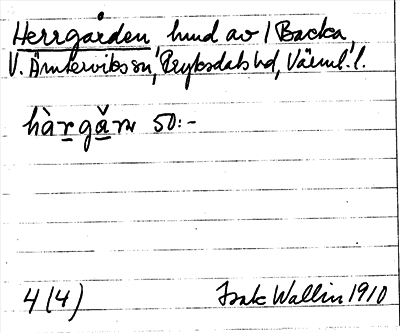 Herrgården hmd av 1 Backa,
V. Ämterviks sn, Fryksdals hd, Värml. l.
hàrgǎṉ 50:-
4 (4) Isak Wallin 1910